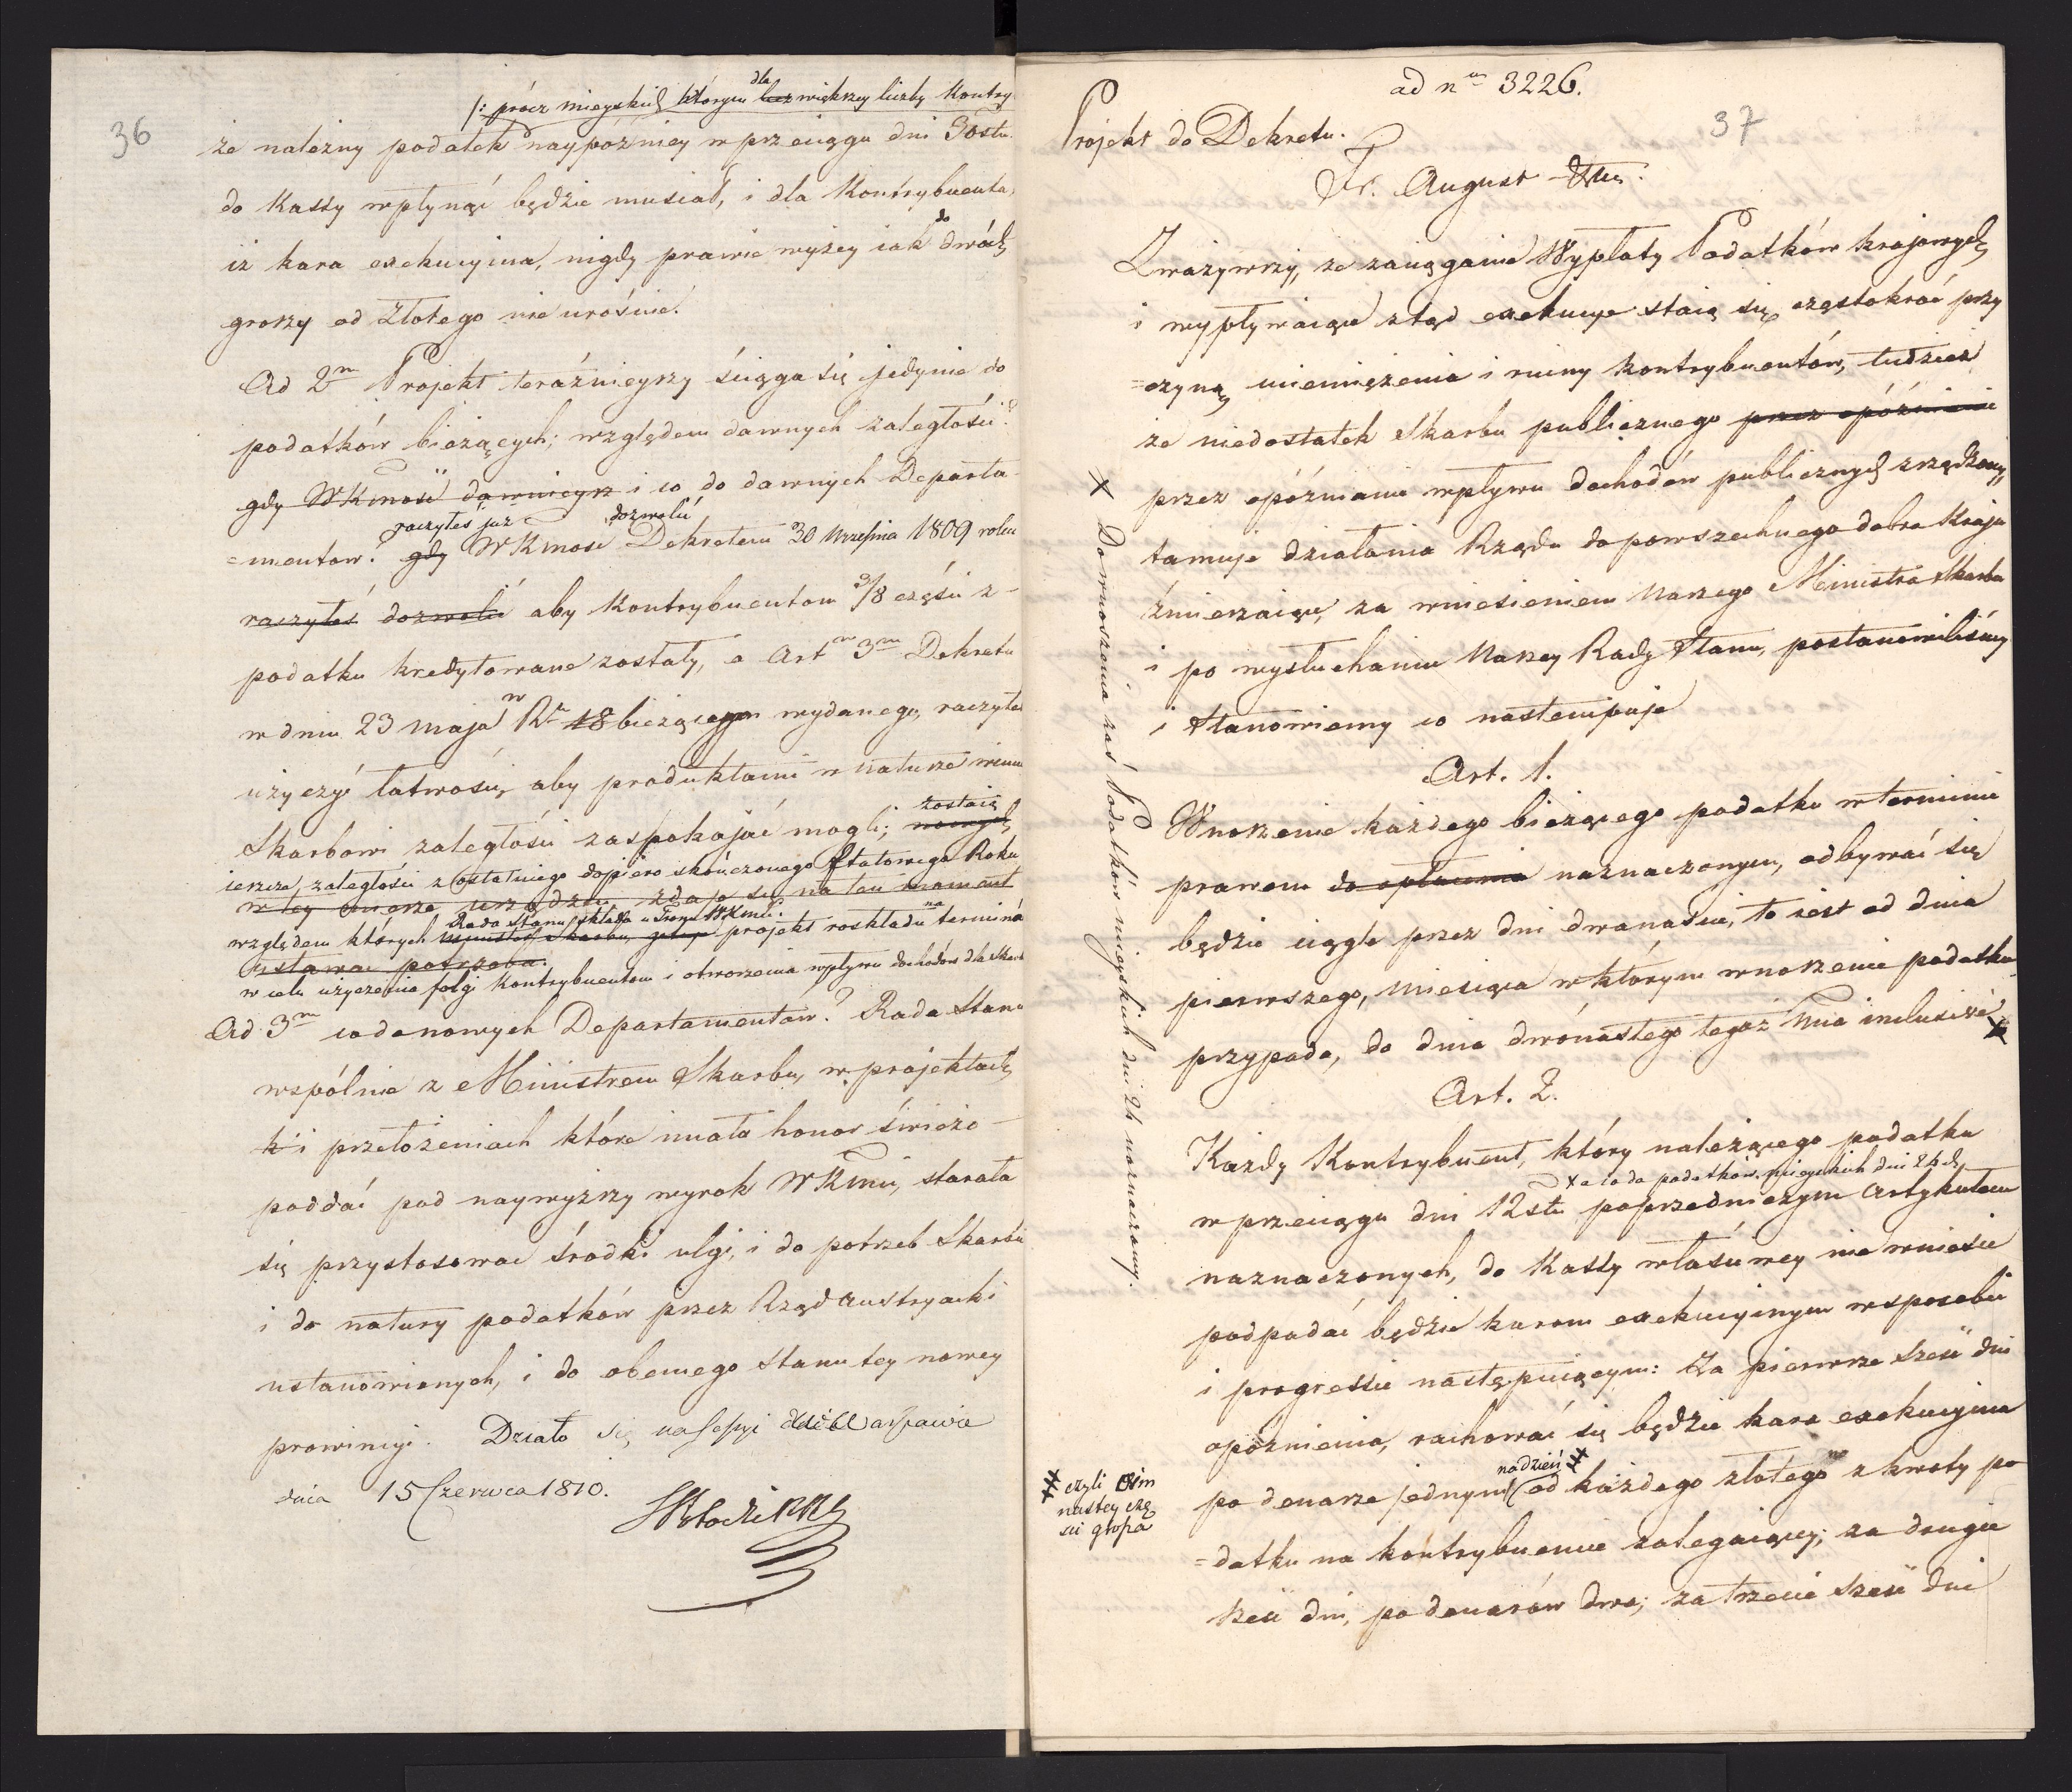 36
/: prócz mieyskich którym dla lecz większey liczby Kontry
że należny podatek naypóźniey w przeciągu dni 30stu
do Kassy wpłynąć będzie musiał, i dla Kontrybuenta,
iż kara exekucyina, nigdy prawie wyżey iak do dwóch
groszy od Złotego nie urośnie.
Ad 2m Projekt teraźnieyszy ściąga się jedynie do
podatków bieżących; względem dawnych zaległości?
gdy WKMość dawnieysz i co do dawnych Departa
raczyłeś już dozwolić
=mentow? gdy WKMość Dekretem 30 Września 1809 roku
raczyłeś dozwolić aby Kontrybuentom 3/8 części z
podatku kredytowane zostały, a Artm 3m Dekretu
w dniu 23 Maja w Ru 18 bieżącym wydanego, raczyłeś
użyczyć łatwości, aby produktami w naturze winne
Skarbowi zaległości zaspokajać mogli; zostaią
nowych
ieszcze zaległości z ostatniego dopiero skończonego Etatowego Roku
w tey mierze urządzeń zdaje się na ten moment
względem których Rada Stanu składa u Tronu WKMci projekt rozkładu na terminá
Minister Skarbu
ustawać potrzeba.
w celu użyczenia folgi Kontrybuentom i otworzenia wpływu dochodów dla Skarb
Ad 3m co do nowych Departamentów? Rada Stanu
wspólnie z Ministrem Skarbu, w projektach
k i przełożeniach które miała honor świeżo
poddać pod naywyższy wyrok WKMci, starała
się przystosować środki ulgi, i do potrzeb Skarbu
i do natury podatków przez Rząd austryacki
ustanowionych, i do obecnego stanu tey nowey
prowincyi. Działo się na Sessyi w Warszawie
dnia 15 Czerwca 1810.
ad nm 3226.
37
Projekt do Dekretu.
Fr. August
Zważywszy, że zaciąganie Wypłaty Podatków krajowych
i wypływaiące ztąd exekucye staią się częstokroć przy
=czyną uciemiężenia i ruiny kontrybuentów, tudzież
że niedostatek Skarbu publicznego przez opóźnienie
przez opóźnianie wpływu dochodów publicznych zrządzony,
tamuje działania Rządu do powszechnego dobra Kraju
zmierzaiące, za wniesieniem Naszego Ministra Skarbu
i po wysłuchaniu Naszey Rady Stanu, postanowiliśmy
i Stanowiemy co nastempuje
Art. 1.
Wnoszenie każdego bieżącego podatku w terminie
prawem do opłacenia naznaczonym, odbywać się
będzie ciągle przez dni dwanaście, to iest od dnia
pierwszego, Miesiąca w którym wnoszenie podatku
przypada, do dnia dwónastego tegoż Mca inclusive x
x Do wnoszenia zaś Podatków mieyskich dni 24 naznaczamy.
Art. 2.
Każdy Kontrybuent, który należącego podatku
x a co do podatków mieyskich dni 24ch
w przeciągu dni 12stu poprzedniczym Artykułem
naznaczonych, do Kassy właściwey nie wniesie
podpadać będzie karom exekucyinym w sposobie
i progressie następuiącym: Za pierwsze sześć dni
opóźnienia, rachować się będzie kara exekucyina
po denarze jednym na dzień # od każdego złotego z kwoty po
# czyli Osim
nastey czę
ści grosza
=datku na kontrybuencie zalegaiącey; za drugie
sześć dni, po denarów dwa; za trzecie sześć dni